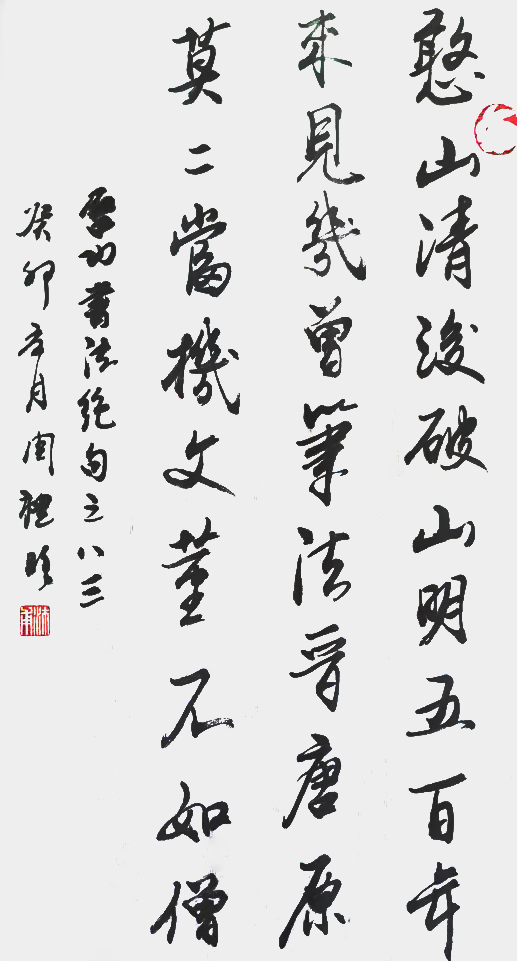 憨山清後破山明五百年
来見幾曾筆法晋唐原
莫二當機文董不如僧
啓功書法絶句之八三
癸卯
月周